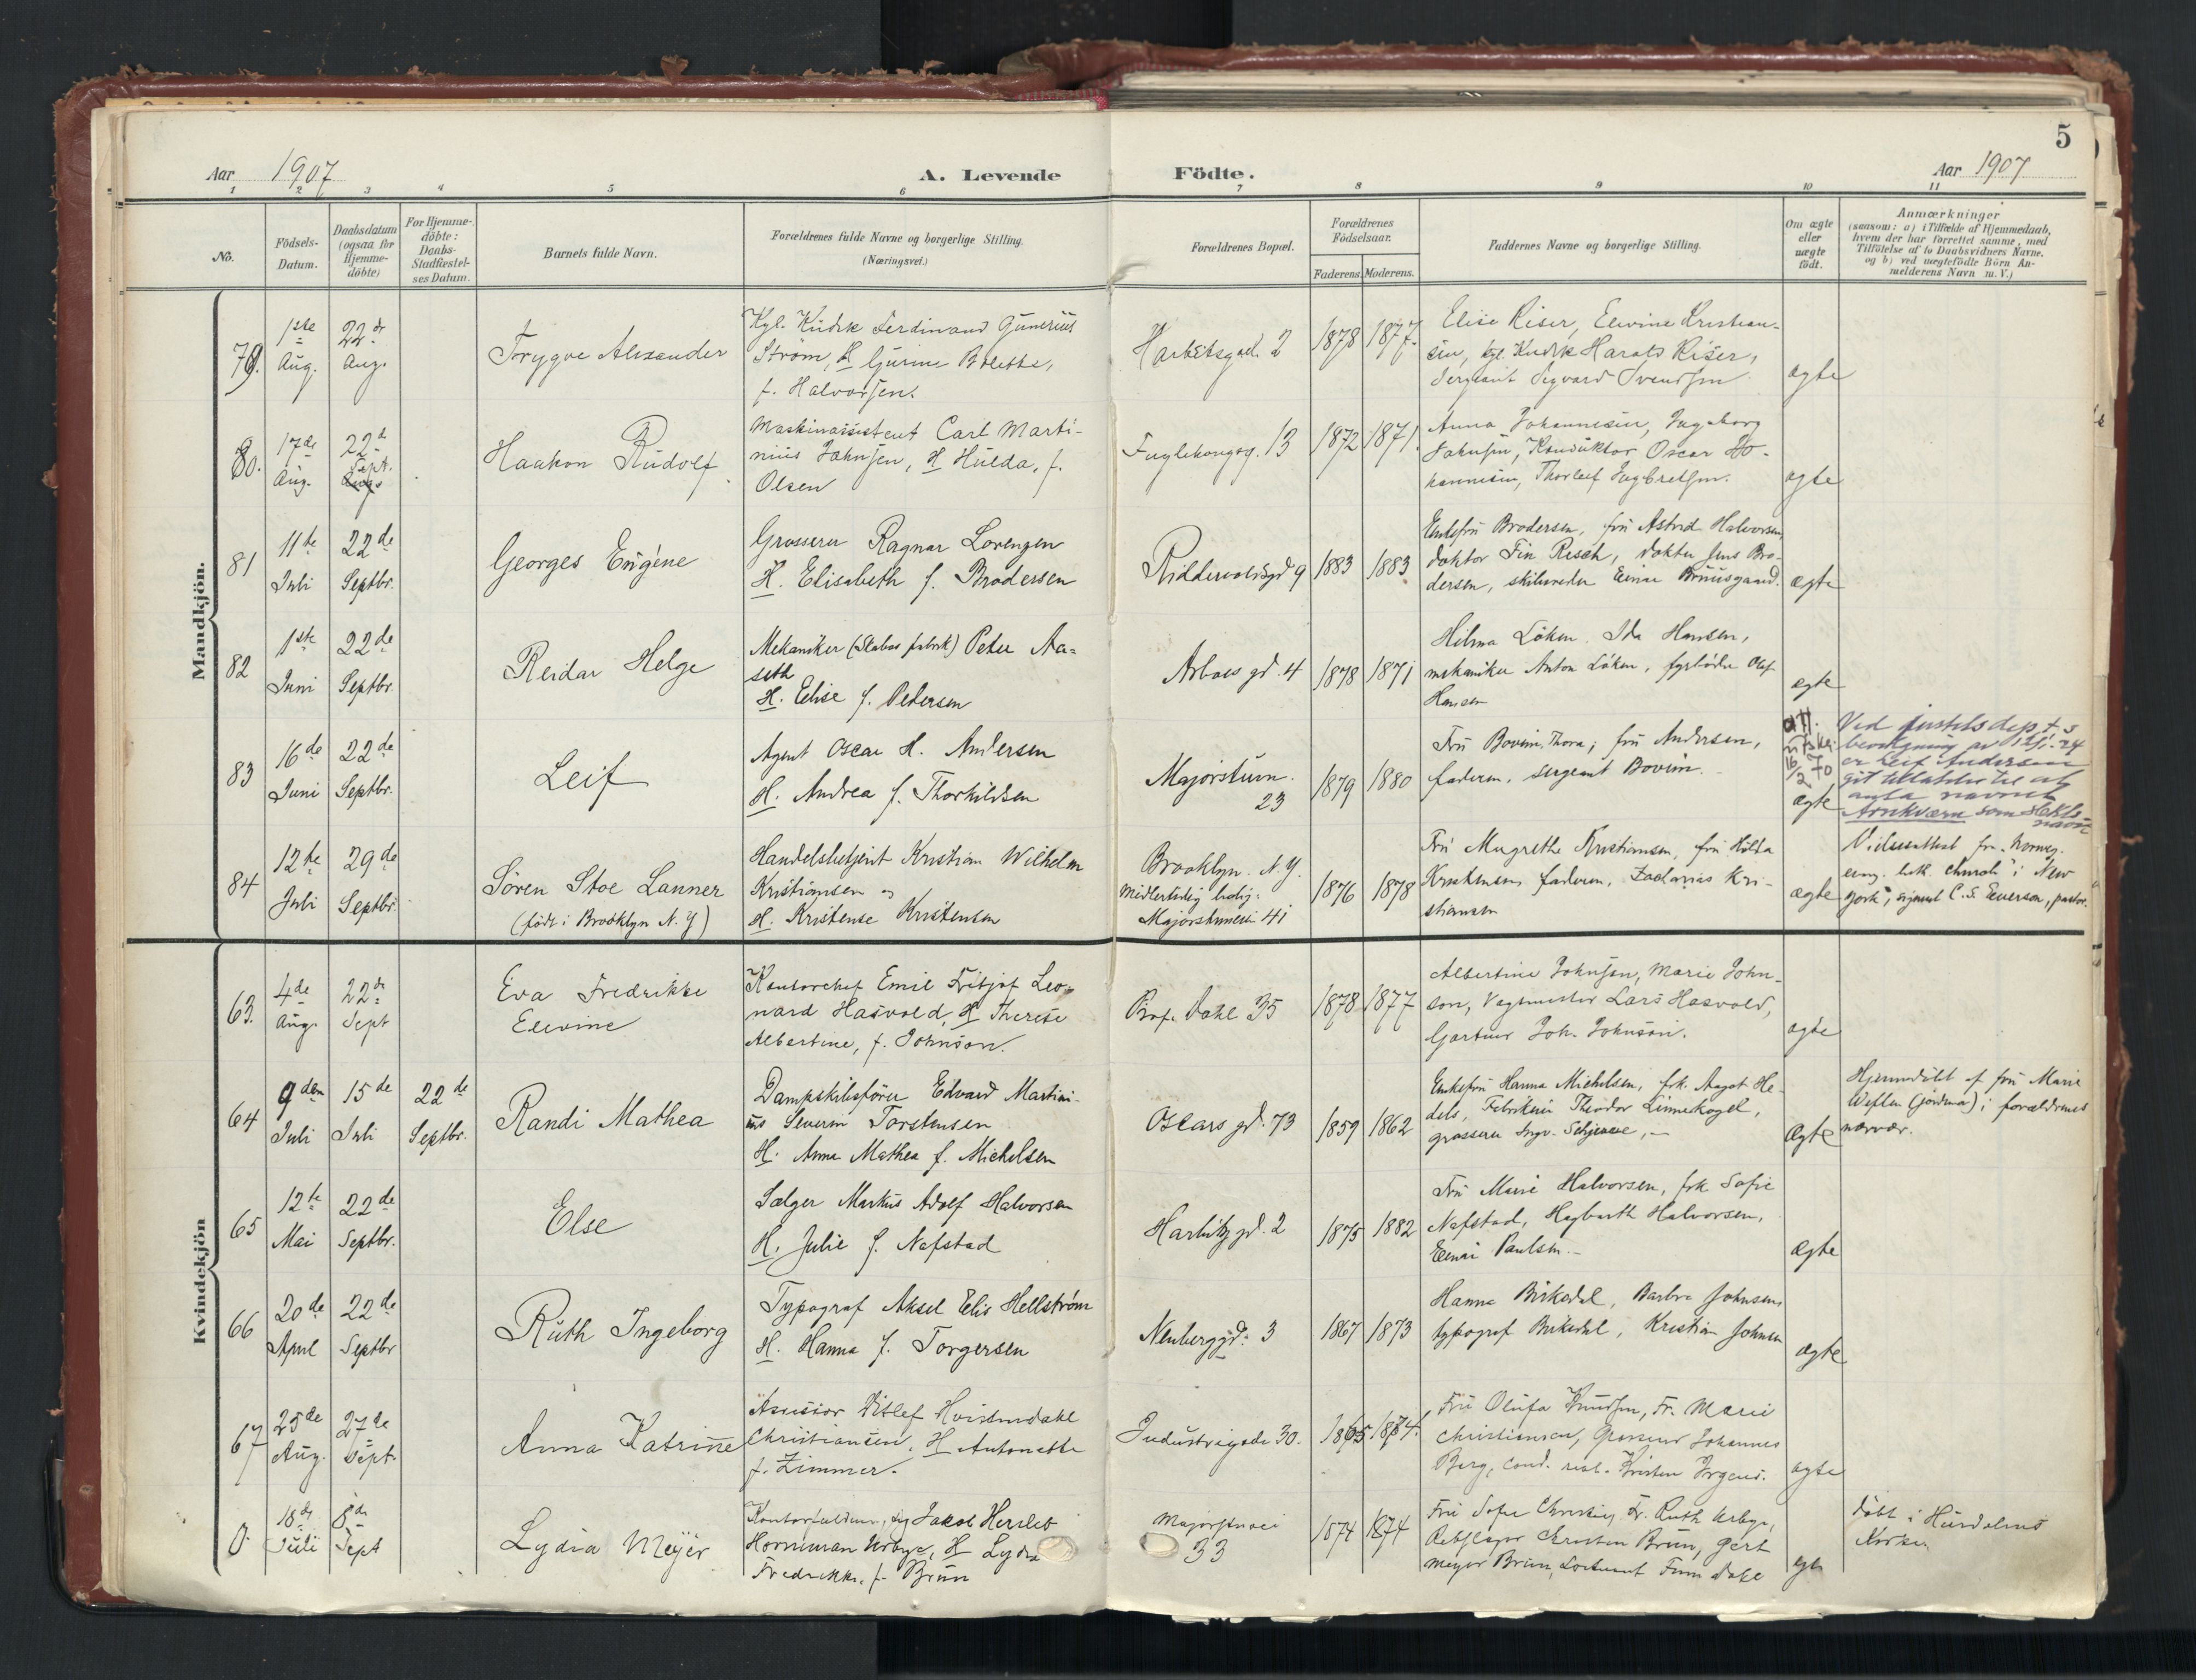 5
Aar 1907
A. Levende
Födte.
Aar 1907
1 2 3 4 5 6 7 8 9 10 11
No.
Födsels-
Datum.
Daabsdatum
(ogsaa for
Hjemme-
döbte)
For Hjemme-
döbte:
Daabs-
Stadfæstel-
ses Datum.
Barnets fulde Navn.
Forældrenes fulde Navne og borgerlige Stilling.
(Næringsvei.)
Forældrenes Bopæl.
Forældrenes
Födselsaar.
Faderens. Moderens.
Faddernes Navne og borgerlige Stilling.
Om ægte
eller
uægte
födt.
Anmærkninger
(saasom: a) i Tilfælde af Hjemmedaab,
hvem der har forrettet samme, med
Tilföielse af to Daabsvidners Navne.
og b) ved uægtefödte Börn An-
melderens Navn m. V.)
Mandkjön.
79.
1ste
Aug.
22de
Aug.
Trygve Alexander
Kgl. Kudsk Ferdinand Gunerius
Ström, H Gurine Bolette,
f. Halvorsen.
Harbitzgad. 2
1878 1877.
Elise Riser, Elevine Kristian-
sen, kgl. Kudsk Harald Riser,
Sergeant Sigvard Svendsen
ægte
80.
17de
Aug.
22de
Sept.
Haakon Rudolf
Maskinassistent Carl Marti-
nius Jahnsen, H Hulda, f.
Olsen
Fuglehaugsg. 13
1872 1871.
Anna Johannesen, Ingeborg
Jahnsen, Konduktør Oscar Jo-
hannesen, Thorleif Ingbretsen.
ægte
81
11te
Juli
22de
Septbr.
Georges Eugéne
Grosserer Ragnar Lorenzen
H. Elisabeth f. Brodersen
Riddervoldsgd 9
1883 1883
Enkefru Brodersen, fru Astrid Halvorsen,
doktor Fin Resch, doktor Jens Bro-
dersen, skibsreder Einar Bruusgaard.
ægte
82
1ste
Juni
22de
Septbr.
Reidar Helge
Mekaniker (Skabos fabrik) Peter Aa-
seth
H. Elise f. Pedersen
Arboes gd. 4
1878 1871
Hilma Löken. Ida Hansen,
mekaniker Anton Löken, fyrböder Olaf
Hansen
ægte
83
16de
Juni
22de
Septbr.
Leif
Agent Oscar H. Andersen
H. Andrea f. Thorkildsen
Majorstuvn.
23
1879 1880
Fru Bovim, Thora; fru Andersen,
faderen, sergeant Bovim.
ægte
Ved justitsdept.s
bevilgning av 12/1. 24
er Leif Andersen
git tillatelse til at
anta navnet
Arnkværn som slekts-
navn
84
12te
Juli
29de
Septbr.
Sören Stoe Lanner
(född i Brooklyn N. Y)
Handelsbetjent Kristian Wilhelm
Kristiansen og
H. Kristense Kristensen
Brooklyn. N. Y.
Midlertidig bolig:
Majorstuveien 41
1876 1878
Fru Margrethe Kristiansen, fru Hilda
Kristensen, faderen, Zacharias Kri-
stiansen
ægte
Vielsesattest fra „Norweg.
evng. luth. church" i New
York", signeret C. S. Everson, pastor.
Kvindekjön
63.
4de
Aug.
22de
Sept
Eva Fredrikke
Elevine
Kontorchef Emil Fritjof Leo-
nard Hasvold, H Therese
Albertine, f. Johnson.
Prof. Dahl 35
1878 1877
Albertine Johnson, Marie John-
son, Vagtmester Lars Hasvold,
Gartner Joh. Johnson.
ægte
64
9den
Juli
15de
Juli
22de
Septbr.
Randi Mathea
Dampskibsförer Edvard Martini-
us Severin Torstensen
H. Anna Mathea f. Michelsen
Oscars gd. 73
1859 1862
Enkefru Hanna Michelsen, frk. Aagot He-
dels, Fabrikeier Theodor Linnekogel,
grosserer Ingv. Schjelle, –
Ægte
Hjemmedöbt af fru Marie
Weflen (jordmor) i forældrenes
nærvær.
65
12te
Mai
22de
Septbr.
Else
Sælger Markus Adolf Halvorsen
H. Julie f. Nafstad
Harbitzgd. 2
1875 1882
Fru Marie Halvorsen, frk Sofie
Nafstad, Hagbarth Halvorsen,
Einar Paulsen. –
Ægte
66
20de
April
22de
Septbr
Ruth Ingeborg
Typograf Aksel Elis Hellström
H. Hanna f. Torgersen
Neuberggd. 3
1867 1873
Hanna Birkedal, Barbra Johnsen,
typograf Birkedal, Kristian Johnsen
ægte
67
25de
Aug.
27de
Sept.
Anna Katrine
Assessor Ditlef Hvistendahl
Christiansen, H Antonette
f. Zimmer.
Industrigade 30.
1865 1874.
Fru Olufa Knudsen, Fr. Marie
Christiansen, Grosserer Johannes
Berg, cand. real. Kristen Jrgens.
ægte
0.
18de
Juli
8de
Sept
Lydia Meyer
Jakob Hersleb
Horneman Urbye, H Lydia
Fredrikke, f. Brun
Majorstuvei
33
1874 1874
Fru Sofie Christie, Fr. Ruth Urbye,
Christen Brun, Gert
Meyer Brun, Lieutnant Finn Dahl
ægte
Döbt i Hurdalens
Kirke.